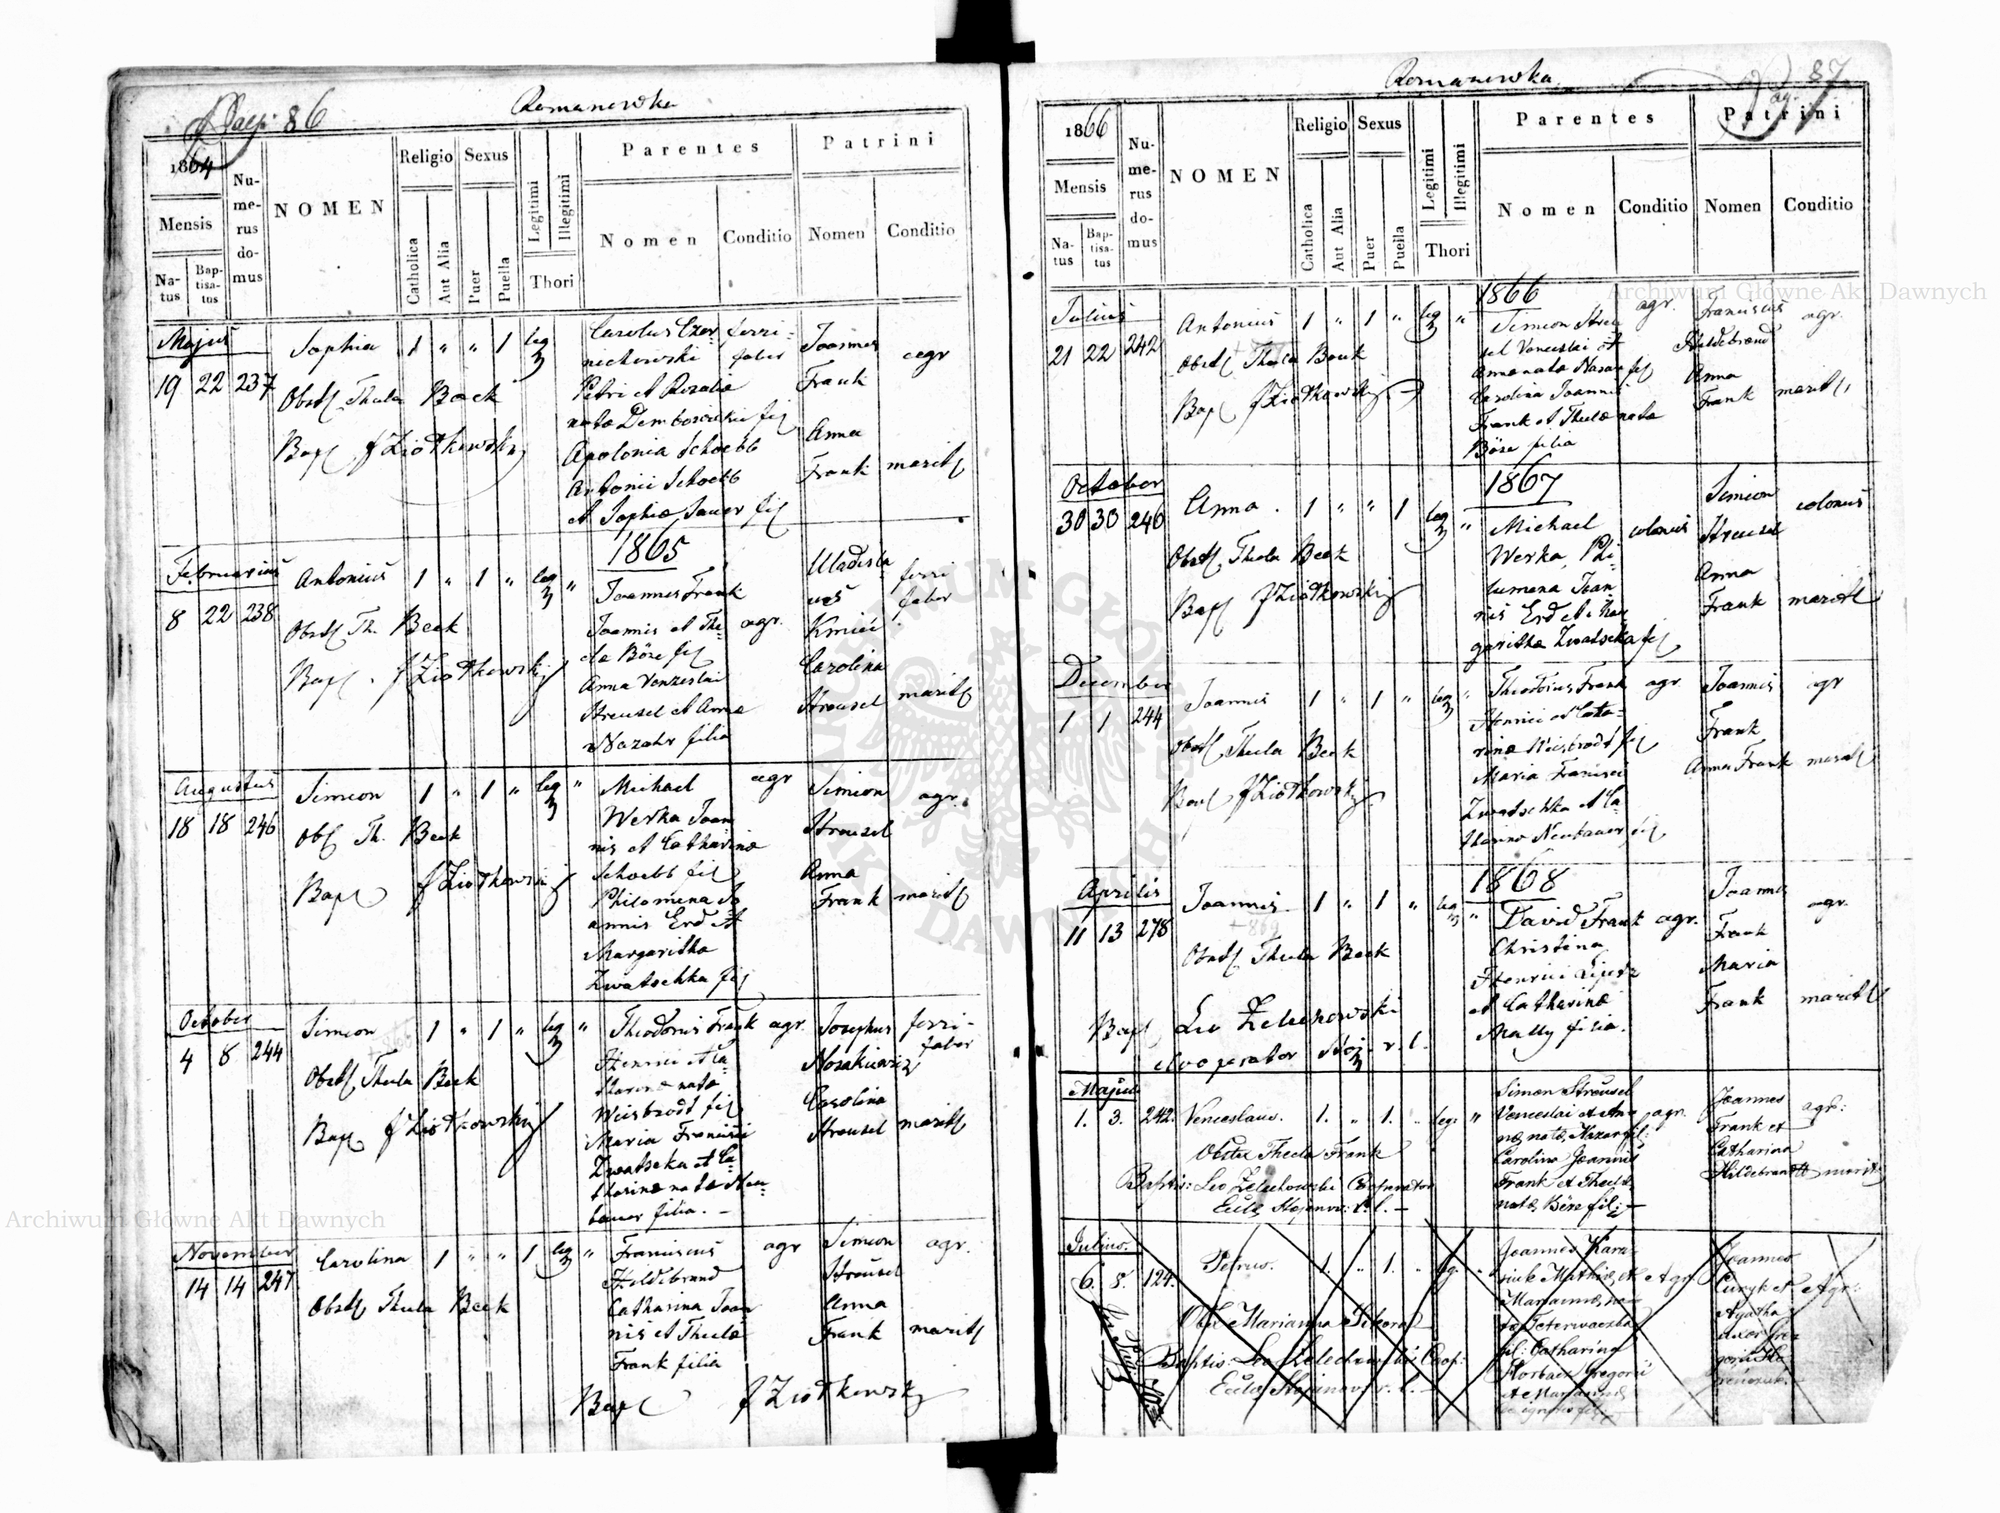 Pag: 86
Romanowka
1864
Mensis
Natus
Baptisatus
Numerus domus
NOMEN
Religio
Catholica
Aut Alia
Sexus
Puer
Puella
Legitimi
Illegitimi
Thori
Parentes
Nomen
Conditio
Patrini
Nomen
Conditio
Majus
19 22 237
Sophia 1 " " 1 leg
Obst Thecla Beck
Bapt J Ziołkowski
Carolus Czer
nichowski
Petri et Rosalia
nata Dembowskie fil
Apolonia Schoebb
Antonii Schoebb
et Sophia Sauer fil
ferri
faber
Joannes
Frank
agr
Anna
Frank marit
Februarius
8 22 238
Antonius 1 " 1 " leg "
Obst Th. Beck
Bapt. J Ziołkowski
1865
Joannes Frank
Joannis et The
cla Böse fil
Anna Venzeslai
Streusel et Anna
Nazahr filia
agr.
Uladisla
us
Kmieć
ferri
faber
Carolina
Streusel marit
Augustus
18 18 246
Simeon 1 " 1 " leg "
Obst Th. Beck
Bapt J Ziołkowski
Michael
Werka Joan
nis et Catharina
Schoebb fil
Philomena Jo
annis Erd et
Margaritha
Zwatschka fil
agr
Simeon
Streusel
agr.
Anna
Frank marit
October
4 8 244
Simeon 1 " 1 " leg "
Obst Thecla Beck
Bapt J Ziołkowski
Theodorus Frank agr.
Henrici et Ca
tharina nata
Weisbrodt fil
Maria Francisci
Zwatschka et Ca
tharina nata Neu
bauer filia. -
Josephus
Nosakiewicz
ferri-
faber
Carolina
Streusel marit
November
14 14 247
Carolina 1 " " 1 leg "
Obst Thecla Beck
Franciscus
Hildebrand
Catharina Joan
nis et Thecla
Frank filia
agr
Simeon
Streusel
agr.
Anna
Frank marit
Bapt J Ziołkowski
Romanowka
Pag. 87
1866
Mensis
Natus
Baptisatus
Numerus domus
NOMEN
Religio
Catholica
Aut Alia
Sexus
Puer
Puella
Legitimi
Illegitimi
Thori
Parentes
Nomen
Conditio
Patrini
Nomen
Conditio
Julius
21 22 242
Antonius 1 " 1 " leg "
Obst Thecla Beck
Bapt J Ziołkowski
1866
Simeon Streu
sel Venceslai et
Anna nata Nasar fil
Carolina Joannis
Frank et Thecla nata
Böse filia
agr.
Franciscus
Hildebrand
agr.
Anna
Frank marit
October
30 30 246
Anna. 1 " " 1 leg "
Obst Thecla Beck
Bapt J Ziołkowski
1867
Michael
Werka, Phi
lumena Joan
nis Erd et Mar
garitha Zwatschka fil
colonus
Simeon
Streusel
colonus
Anna
Frank marit
December
1 1 244
Joannes 1 " 1 " leg "
Obst Thecla Beck
Bapt J Ziołkowski
Theodorus Frank agr.
Henrici et Cata-
rina Weisbrodt fil
Maria Francisci
Zwatschka et Ca-
tharina Neubauer fil
Joannes
Frank
agr
Anna Frank marit
Aprilis
11 13 278
Joannes 1 " 1 " leg "
+869
Obst Thecla Beck
Bapt Leo Zelechowski
Cooperator Stoj. r. l.
1868
David Frank agr.
Christina
Henrici
et Catharina
Mally filia.
Joannes
Frank
agr.
Maria
Frank marit
Majus
1. 3. 242.
Venceslaus. 1. " 1. " leg. "
Obste Thecla Frank
Baptis: Leo Zelechowski Cooperator
Eccle Stojanov: r. l. -
Simon Streusel
Venceslai et An
nae nata Nazar fil:
Carolina Joannis
Frank et Thecla
nata Böse fil: -
agr.
Joannes
Frank et
Catharina
Hildebrandt marit
agr:
Julius.
6. 8. 124.
Petrus. 1. " 1. leg.
Obst Marianna Sikora
Baptis: Leo Zelechowski Coop:
Eccle Stojanov: r. l. -
Joannes Kara-
siuk Mathiae et
Mariannae na-
fil: Catharina
Horbacz Gregorii
et Mariannae
Agr.
Joannes
Curyk et
Agatha
uxor Gre
gorii
Agr:
Archiwum Główne Akt Dawnych
Archiwum Główne Akt Dawnych
ARCHIWUM GŁÓWNE AKT DAWNYCH